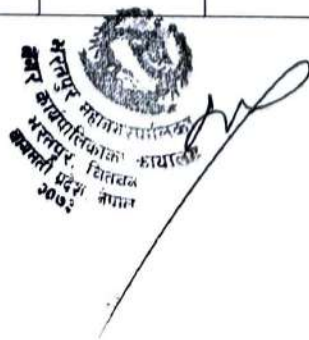 भरतपुर महानगरपालिका
नगर कार्यपालिकाको कार्यालय
भरतपुर, चितवन
बागमती प्रदेश नेपाल
२०७३